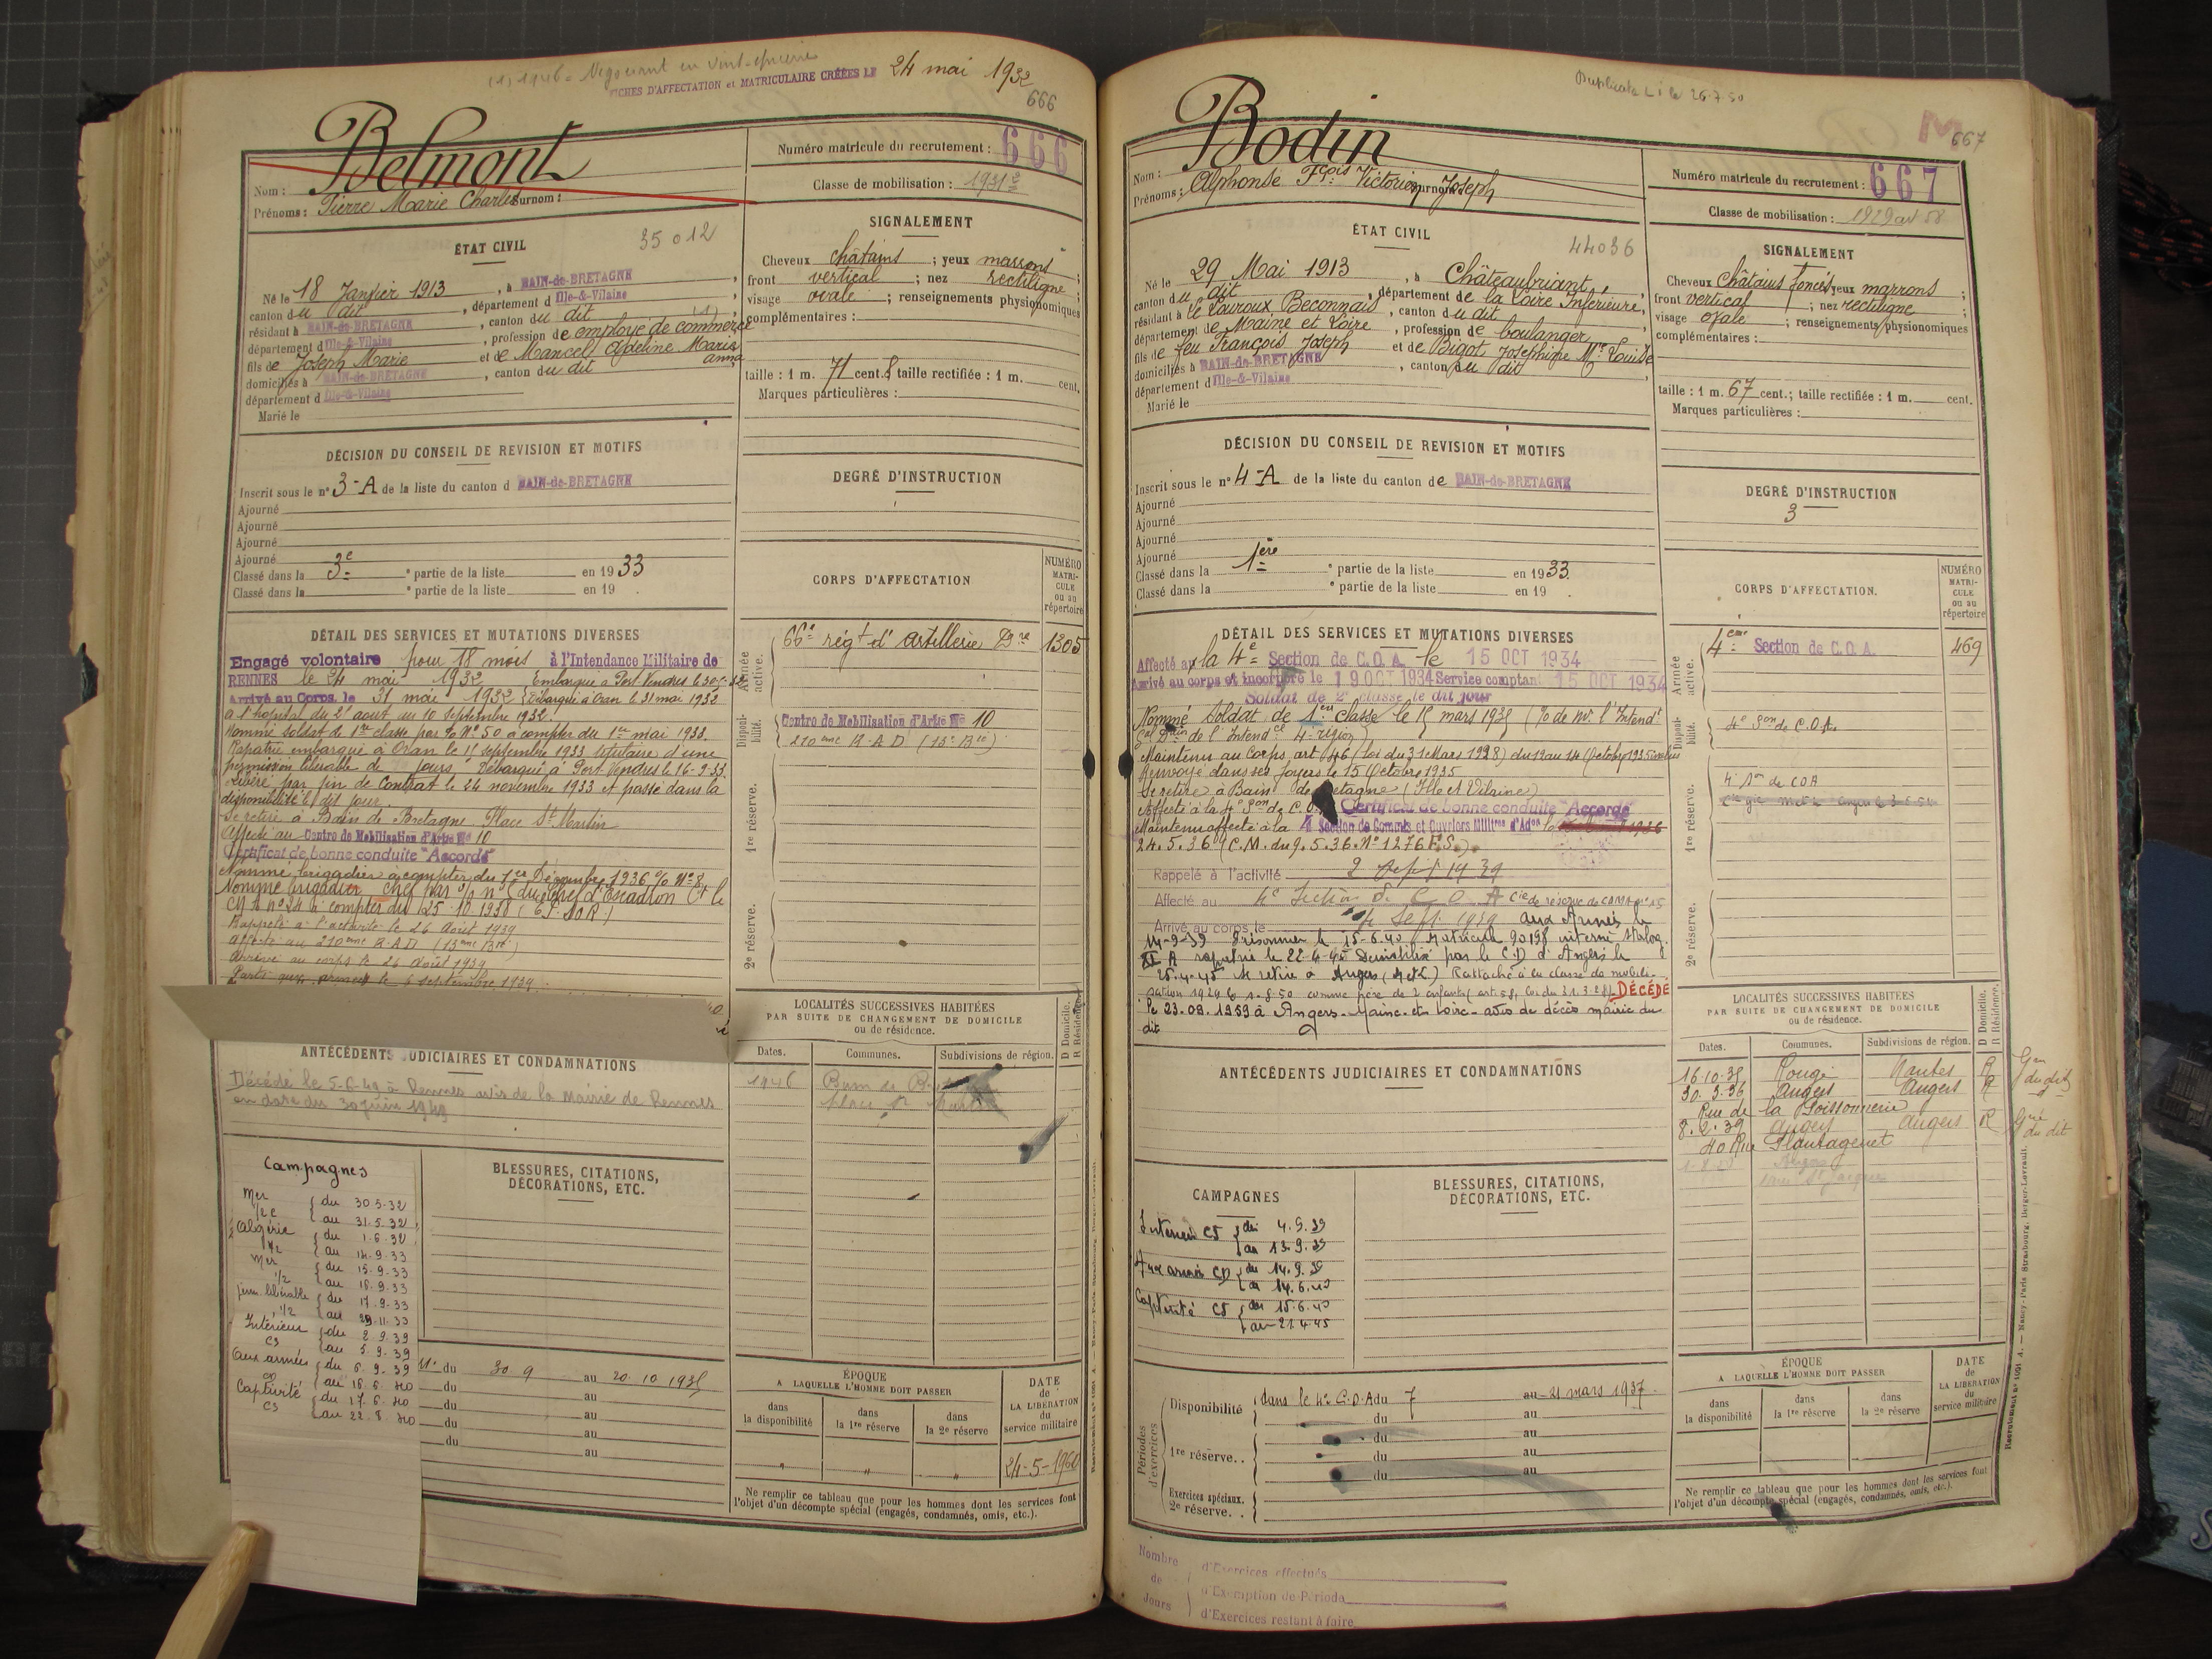 (1) 1946 = Négociant en
FICHES D'AFFECTATION et MATRICULAIRE CRÉÉES LE 24 mai 1932
666
Belmont
Nom :
Prénoms : Pierre Marie Charles Surnom :
Numéro matricule du recrutement : 666
Classe de mobilisation : 1931
ÉTAT CIVIL
35012
Né le 18 Janvier 1913, à BAIN-de-BRETAGNE,
canton du dit, département d Ille-&-Vilaine,
résidant à BAIN-de-BRETAGNE, canton du dit (1),
département d Ille-&-Vilaine, profession de employé de commerce
fils de Joseph Marie et de Marcel Adeline Marie Anna
domiciliés à BAIN-de-BRETAGNE, canton du dit
département d Ille-&-Vilaine
Marié le
SIGNALEMENT
Cheveux châtains ; yeux marrons ;
front vertical ; nez rectiligne ;
visage ovale ; renseignements physionomiques
complémentaires :
taille : 1 m. 71 cent. 8 taille rectifiée : 1 m. cent.
Marques particulières :
DÉCISION DU CONSEIL DE REVISION ET MOTIFS
Inscrit sous le n° 3-A de la liste du canton d BAIN-de-BRETAGNE
Ajourné
Ajourné
Ajourné
Ajourné
Classé dans la 3e ° partie de la liste en 1933
Classé dans la ° partie de la liste en 19 .
DEGRÉ D'INSTRUCTION
CORPS D'AFFECTATION
NUMÉRO MATRI-CULE ou au répertoire
Armée active.
66e régt d'artillerie 1305
Disponibilité.
Centre de Mobilisation d'Artie N° 10
210ème R.A.D (13e Bie)
1re réserve.
2e réserve.
DÉTAIL DES SERVICES ET MUTATIONS DIVERSES
Engagé volontaire pour 18 mois à l'Intendance Militaire de
RENNES le 24 mai 1932 Embarqué à Port-Vendres le 30-5-32
Arrivé au Corps le 31 mai 1932 Débarqué à Oran le 31 mai 1932
à l'hôpital du 21 août au 10 septembre 1932.
Nommé soldat de 1ère classe par % N° 50 à compter du 1er mai 1933.
Rapatrié embarqué à Oran le 15 septembre 1933 titulaire d'une
permission libérable de jours Débarqué à Port-Vendres le 16-9-33.
Libéré par fin de Contrat le 24 novembre 1933 et passé dans la
disponibilité le dit jour.
Se retire à Bain de Bretagne Place St Martin
Affecté au Centre de Mobilisation d'Artie N° 10
Certificat de bonne conduite "Accordé"
Nommé brigadier à compter du 1er Décembre 1936 % N° 8
Nommé brigadier chef par % n° du Chef d'Escadron Ct le
CM A n° 24 à compter du 25.10.1938
Rappelé à l'activité le 26 Août 1939
affecté au 210ème R.A.D (13ème Bie)
Arrivé au corps le 26 Août 1939
Parti aux armées le 6 septembre 1939
ANTÉCÉDENTS JUDICIAIRES ET CONDAMNATIONS
Décédé le 5-6-49 à Rennes avis de la Mairie de Rennes
en date du 30 juin 1949
LOCALITÉS SUCCESSIVES HABITÉES
PAR SUITE DE CHANGEMENT DE DOMICILE
ou de résidence.
D Domicile. R Résidence.
Dates. Communes. Subdivisions de région.
1946 Bain de B.
Place St
Campagnes
Mer du 30.5.32
au 31.5.32
Algérie du 1-6-32
1/2 au 14-9-33
Mer du 15-9-33
1/2 au 16.9.33
perm. libérable du 17.9.33
1/2 au 23.11.33
Intérieur du 2.9.39
CS au 5.9.39
Aux armées du 6.9.39
CD au 16.6.40
Captivité du 17.6.40
CS au 22.8.40
BLESSURES, CITATIONS,
DÉCORATIONS, ETC.
du 30.9 au 20.10 1935
du au
du au
du au
du au
ÉPOQUE
A LAQUELLE L'HOMME DOIT PASSER
dans la disponibilité
dans la 1re réserve
dans la 2e réserve
DATE de LA LIBÉRATION du service militaire
24-5-1960
Ne remplir ce tableau que pour les hommes dont les services font
l'objet d'un décompte spécial (engagés, condamnés, omis, etc.).
Duplicata L i le 26.7.50
M
667
Bodin
Nom :
Prénoms : Alphonse Fçois Victorien Surnom : Joseph
Numéro matricule du recrutement : 667
Classe de mobilisation : 1929
ÉTAT CIVIL
44036
Né le 29 Mai 1913, à Châteaubriant,
canton du dit, département de la Loire Inférieure,
résidant à le Louroux Béconnais, canton du dit
département de Maine et Loire, profession de boulanger
fils de feu François Joseph et de Bigot Joséphine Mie Louise
domiciliés à BAIN-de-BRETAGNE, canton du dit
département d Ille-&-Vilaine
Marié le
SIGNALEMENT
Cheveux châtains foncés, yeux marrons ;
front vertical ; nez rectiligne ;
visage ovale ; renseignements physionomiques
complémentaires :
taille : 1 m. 67 cent.; taille rectifiée : 1 m. cent.
Marques particulières :
DÉCISION DU CONSEIL DE REVISION ET MOTIFS
Inscrit sous le n° 4-A de la liste du canton de BAIN-de-BRETAGNE
Ajourné
Ajourné
Ajourné
Ajourné
Classé dans la 1ère ° partie de la liste en 1933.
Classé dans la ° partie de la liste en 19 .
DEGRÉ D'INSTRUCTION
3
CORPS D'AFFECTATION.
NUMÉRO MATRI-CULE ou au répertoire
Armée active.
4eme Section de C.O.A. 469
Disponibilité.
4e Son de C.O.A.
1re réserve.
4e Son de COA
2e réserve.
DÉTAIL DES SERVICES ET MUTATIONS DIVERSES
Affecté à la 4e Section de C.O.A. le 15 OCT 1934
Arrivé au corps et incorporé le 19 OCT 1934 Service comptant 15 OCT 1934
Soldat de 2e classe le dit jour
Nommé Soldat de 1ère classe le 15 mars 1935 (% de Mr l'Intendt
Gal Dir de l'Intendce 4e région)
Maintenu au Corps art 46 (loi du 31 Mars 1928) du 12 au 14 Octobre 1935
Renvoyé dans ses foyers le 15 Octobre 1935
Se retire à Bain de Bretagne (Ille et Vilaine)
Affecté à la 4e Son de C.O. Certificat de bonne conduite "Accordé"
Maintenu affecté à la 4 Section de Commis et Ouvriers Militres d'Adon le
24.5.36 (C.M. du 9.5.36. N° 1276 F.S.)
Rappelé à l'activité 2 Sept 1939
Affecté au 4e Section de C O A Cie de réserve de COMA N° 15
Arrivé au corps le 4 Sept. 1939 aux Armées le
14-9-39 Prisonnier le 15-6-40 Matricule 90198 interné Stalag
XI A rapatrié le 22-4-45 Démobilisé par le C.D d'Angers le
25.4.45 se retire à Angers (M & L) Rattaché à la classe de mobili-
sation 1929 le 1-8-50 comme père de 2 enfants (art. 58, loi du 31.3.28). DÉCÉDÉ
le 23.09.1959 à Angers-Maine-et-Loire-avis de décès mairie du
dit
ANTÉCÉDENTS JUDICIAIRES ET CONDAMNATIONS
LOCALITÉS SUCCESSIVES HABITÉES
PAR SUITE DE CHANGEMENT DE DOMICILE
ou de résidence.
D Domicile. R Résidence.
Dates. Communes. Subdivisions de région.
16.10.35 Rougé Nantes R Gen du dit
30.3.36 Angers Angers R
Rue de la Poissonnerie
8.2.39 Angers Angers R Gnie du dit
40 Rue Plantagenet
CAMPAGNES
Intérieur CS du 4.9.39
au 13.9.39
Aux armées CD du 14.9.39
au 14.6.40
Captivité CS du 15.6.40
au 21.4.45
BLESSURES, CITATIONS,
DÉCORATIONS, ETC.
Périodes d'exercices
Disponibilité dans le 4e C.O.A du 7 au 21 mars 1937.
du au
1re réserve.. du au
du au
du au
Exercices spéciaux.
2e réserve. .
ÉPOQUE
A LAQUELLE L'HOMME DOIT PASSER
dans la disponibilité
dans la 1re réserve
dans la 2e réserve
DATE de LA LIBÉRATION du service militaire
Ne remplir ce tableau que pour les hommes dont les services font
l'objet d'un décompte spécial (engagés, condamnés, omis, etc.).
Nancy-Paris Strasbourg, Berger-Levrault.
Nombre de Jours
d'Exercices effectués
d'Exemption de Période
d'Exercices restant à faire